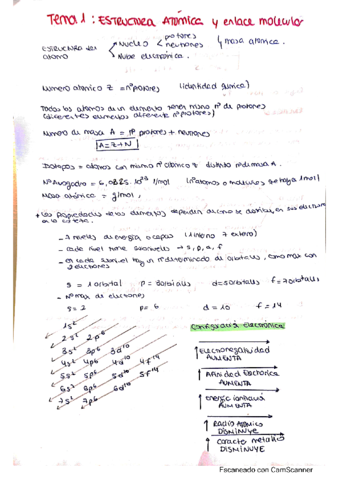 Tema 1: ESTRUCTURA ATÓMICA y enlace molecular
ESTRUCTURA del átomo
Núcleo protones neutrones masa atómica.
Nube electrónica.
Número atómico Z = nº protones (identidad química)
Todos los átomos de un elemento tienen mismo nº de protones
(diferentes elementos diferente nº protones)
Número de masa A = nº protones + neutrones
A = Z + N
Isótopos = átomos con mismo nº atómico Z distinto nº de masa A.
Nº Avogadro = 6,0225. 10²³ 1/mol (nº átomos o moléculas 1mol)
Masa atómica = g/mol,
las propiedades de los elementos dependen de como se distribuyen sus electrones
en la corteza.
- 7 niveles de energía o capas (1 interno 7 externo)
- cada nivel tiene subniveles → s, p, d, f
- en cada subnivel hay un nº determinado de orbitales, como max con
2 electrones
s = 1 orbital p = 3 orbitales d = 5 orbitales f = 7 orbitales
- Nº max de electrones
s = 2 p = 6 d = 10 f = 14
1s²
2s² 2p⁶
3s² 3p⁶ 3d¹⁰
4s² 4p⁶ 4d¹⁰ 4f¹⁴
5s² 5p⁶ 5d¹⁰ 5f¹⁴
6s² 6p⁶ 6d¹⁰
7s² 7p⁶
Configuración electrónica
Electronegatividad
AUMENTA
Afinidad Electrónica
AUMENTA
energía ionización
AUMENTA
Radio Atómico
DISMINUYE
Carácter metálico
DISMINUYE
Escaneado con CamScanner